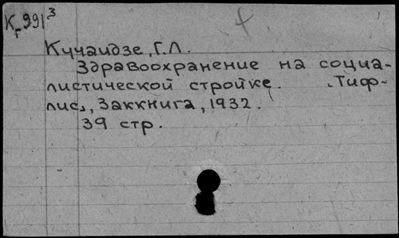 Кг991³
Кучаидзе, Г.Л.
Здравоохранение на социа-
листической стройке. "Тиф-
лис", Заккнига, 1932.
39 стр.